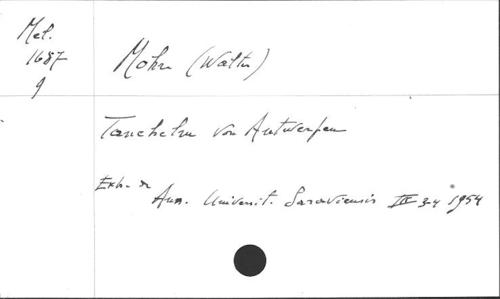 Mel.
1687
g
Mohr (Walter)
Tanchelm von Antwerpen
Extr. de
Ann. Universit. Saraviensis III 3-4 1954